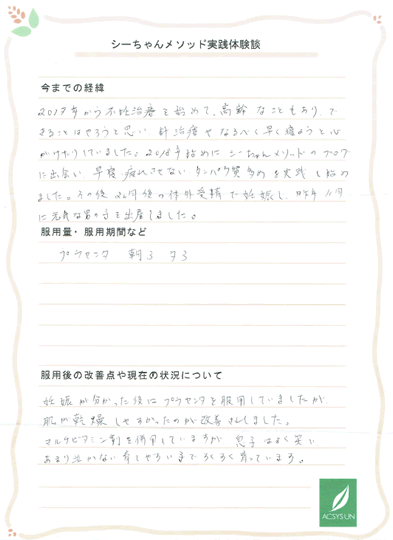 シーちゃんメソッド実践体験談
今までの経緯
2017年から不妊治療を始めて、高齢なこともあり、で
きることはやろうと思い 針治療やなるべく早く寝ようと心
がけたりしていました。2018年始めに シーちゃんメソッドのブログ
に出会い 早寝、疲れさせない タンパク質多めを実践し始め
ました。その後 2ヶ月後の体外受精で妊娠し、昨年 11月
に元気な男の子を出産しました。
服用量・服用期間など
プラセンタ 朝3 夕3
服用後の改善点や現在の状況について
妊娠が分かった後は プラセンタを服用していましたが
肌が乾燥しやすかったのが改善されました。
マルチビタミン剤を併用していますが 息子はよく笑い
あまり泣かない 育てやすい子で すくすく育っています。
ACSYSUN